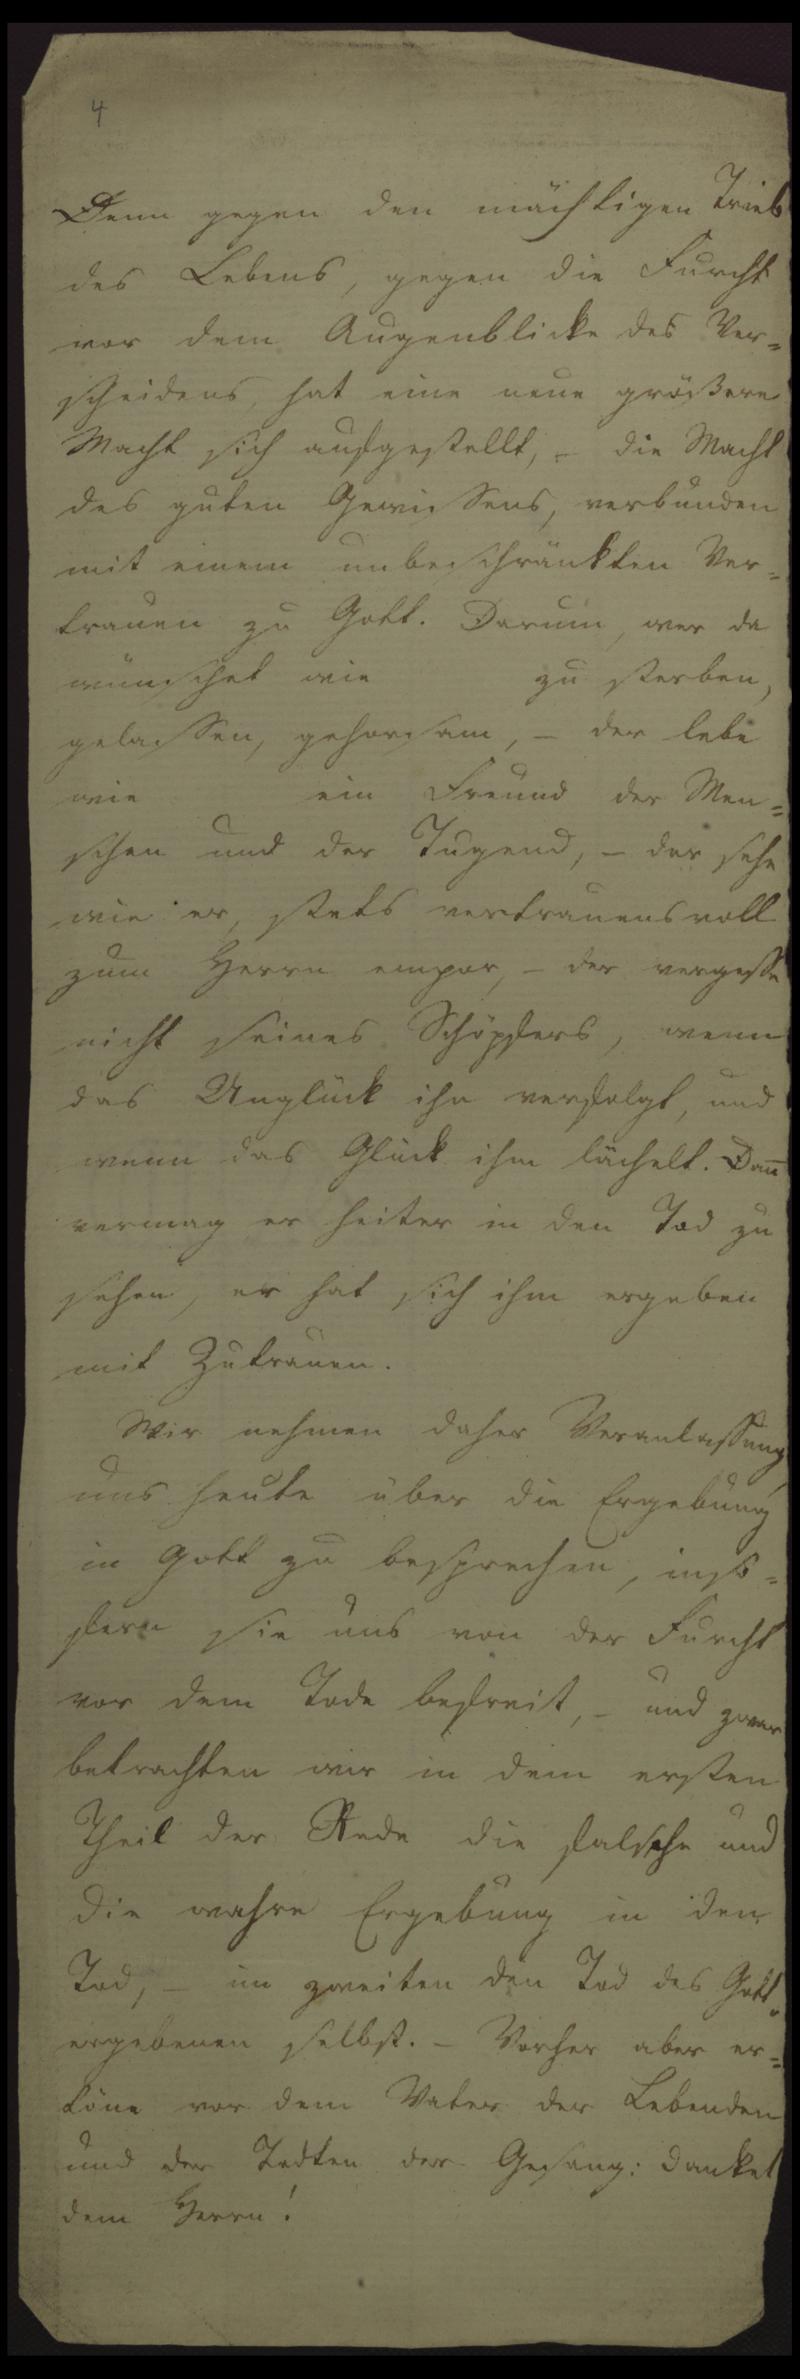 4
Denn gegen den mächtigen Trieb
des Lebens, gegen die Furcht
vor dem Augenblicke des Ver=
scheidens, hat eine neue größere
Macht sich aufgestellt, – die Macht
des guten Gewissens, verbunden
mit einem unbeschränkten Ver=
trauen zu Gott. Darum, wer da
wünschet wie zu sterben,
gelassen, gehorsam, – der lebe
wie ein Freund der Men=
schen und der Tugend, – der sehe
wie er, stets vertrauensvoll
zum Herrn empor, – der vergesse
nicht seines Schöpfers, wenn
das Unglück ihn verfolgt, und
wenn das Glück ihm lächelt. Dan̅
vermag er heiter in den Tod zu
sehen, er hat sich ihm ergeben
mit Zutrauen.
Wir nehmen daher Veranlassung,
uns heute über die Ergebung
in Gott zu besprechen, inso=
fern sie uns von der Furcht
vor dem Tode befreit, – und zwar
betrachten wir in dem ersten
Theil der Rede die falsche und
die wahre Ergebung in den
Tod, – im zweiten den Tod des Gott=
ergebenen selbst. – Vorher aber er=
töne vor dem Vater der Lebenden
und der Todten der Gesang: danket
dem Herrn!